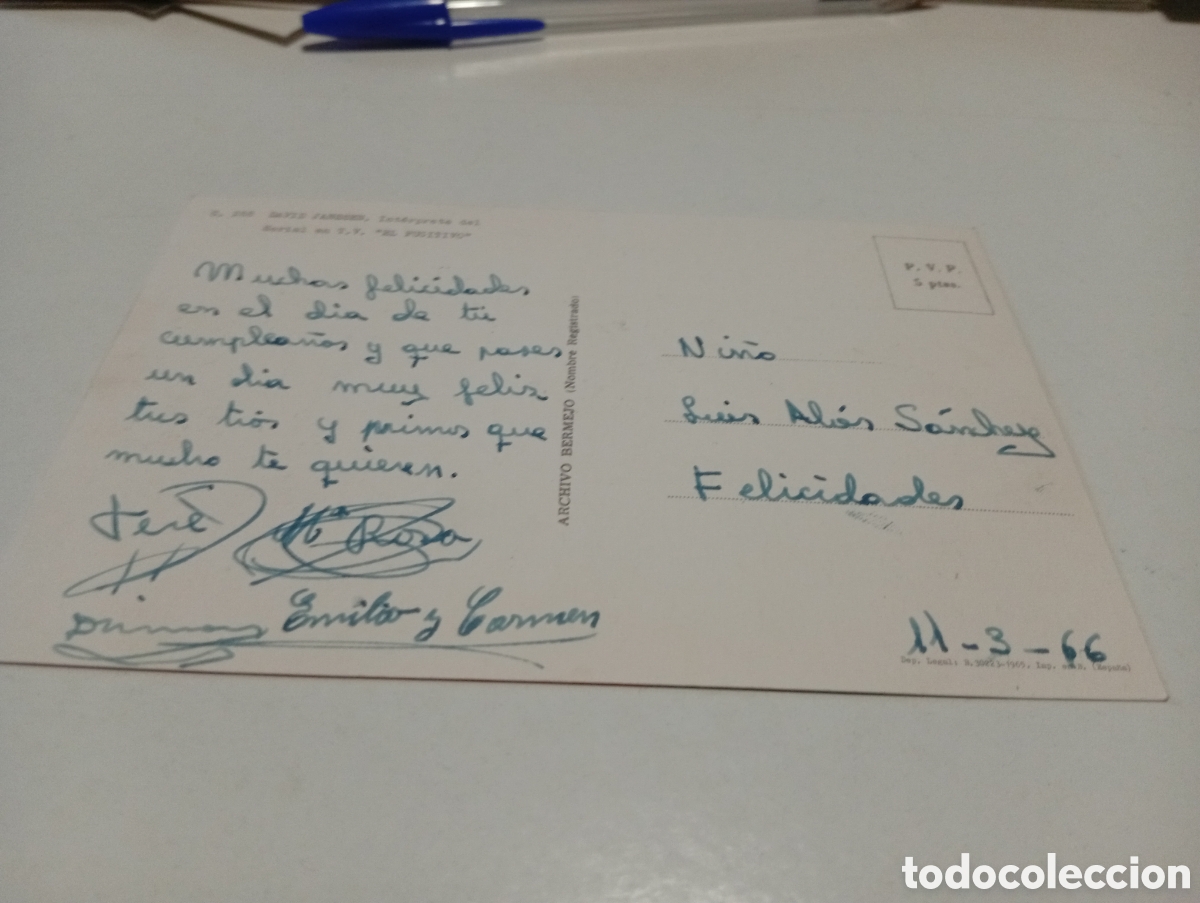 DAVID JANSSEN, Intérprete del
Serial en T.V. "EL FUGITIVO"
Muchas felicidades
en el dia de tu
cumpleaños y que pases
un dia muy feliz
tus tios y primos que
mucho te quieren.
Tere
Mª Rosa
Emilio y Carmen
ARCHIVO BERMEJO (Nombre Registrado)
P. V. P.
5 ptas.
Niño
Luis Alós Sánchez
Felicidades
11-3-66
Dep. Legal:
(España)
todocoleccion